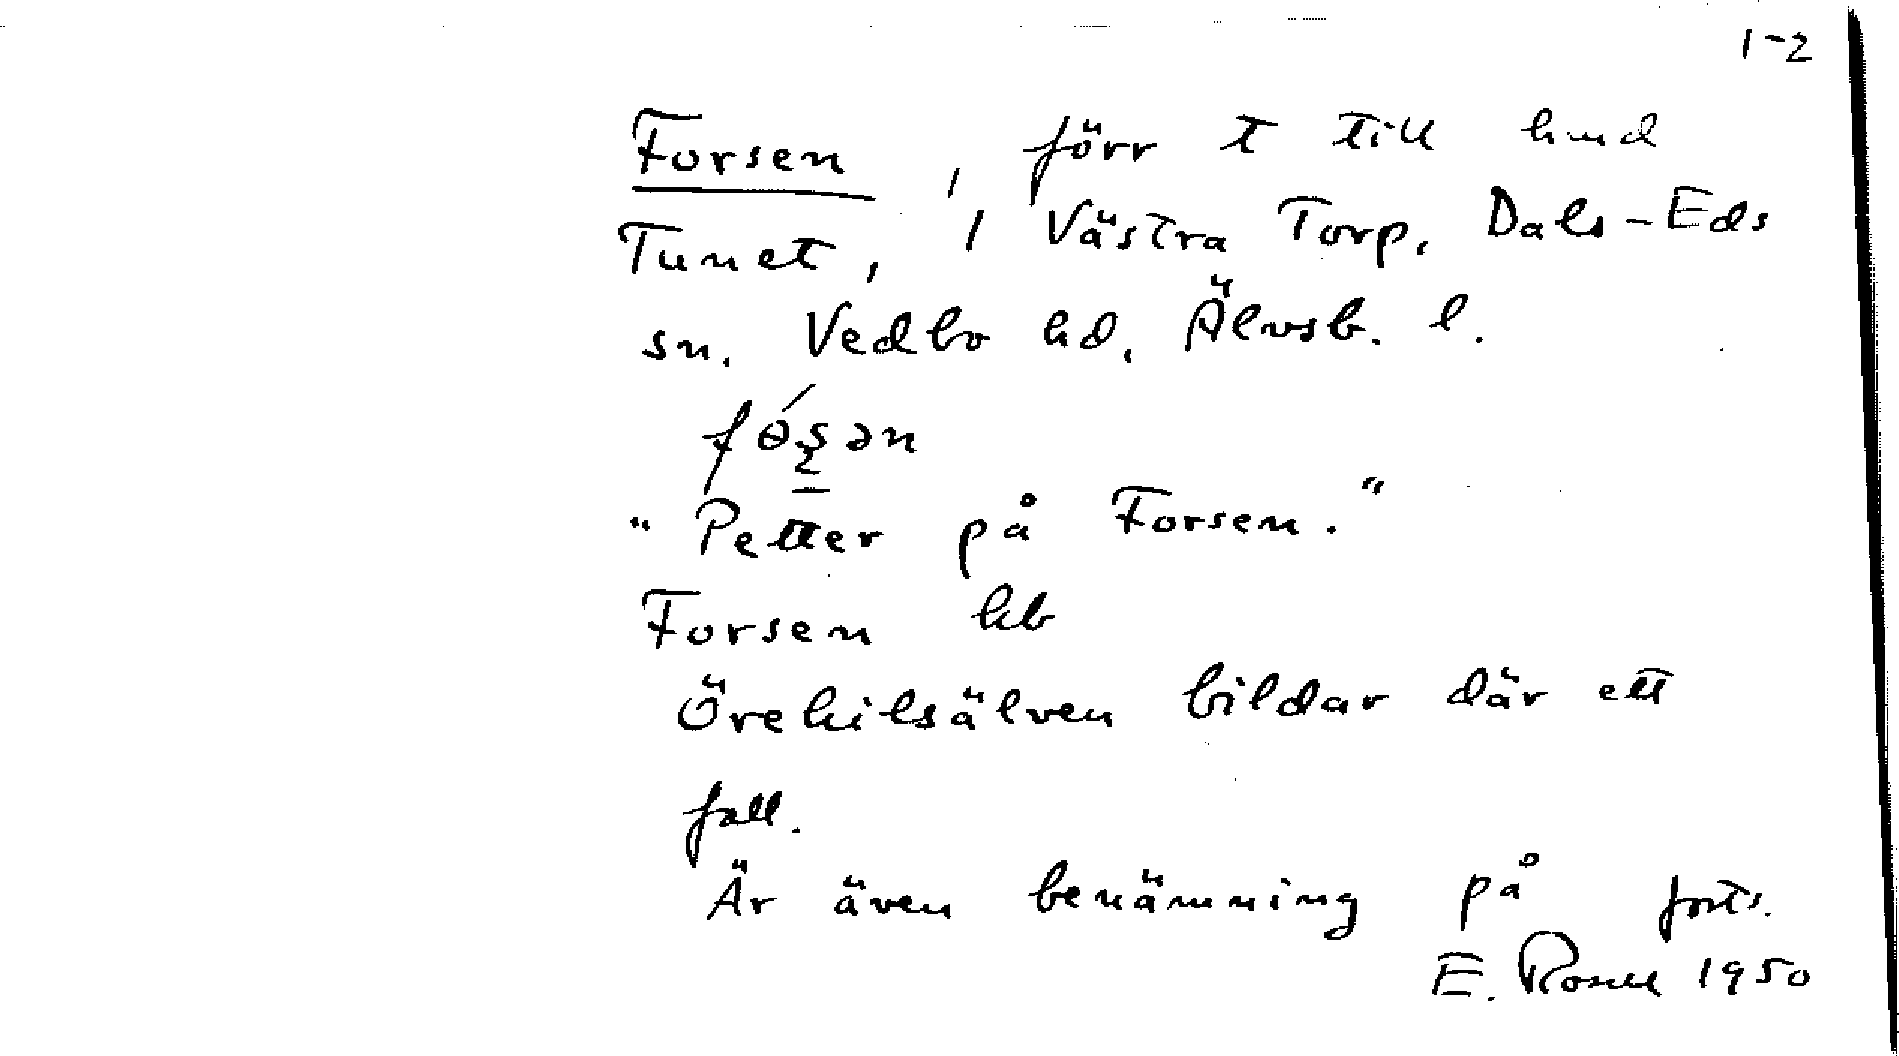 1-2
Forsen, förr t till hmd
Tunet, 1 Västra Torp, Dals-Eds
sn. Vedbo hd, Älvsb. l.
"Petter på Forsen."
Forsen kb
Örekilsälven bildar där ett
fall.
Är även benämning på forts.
E. 1950